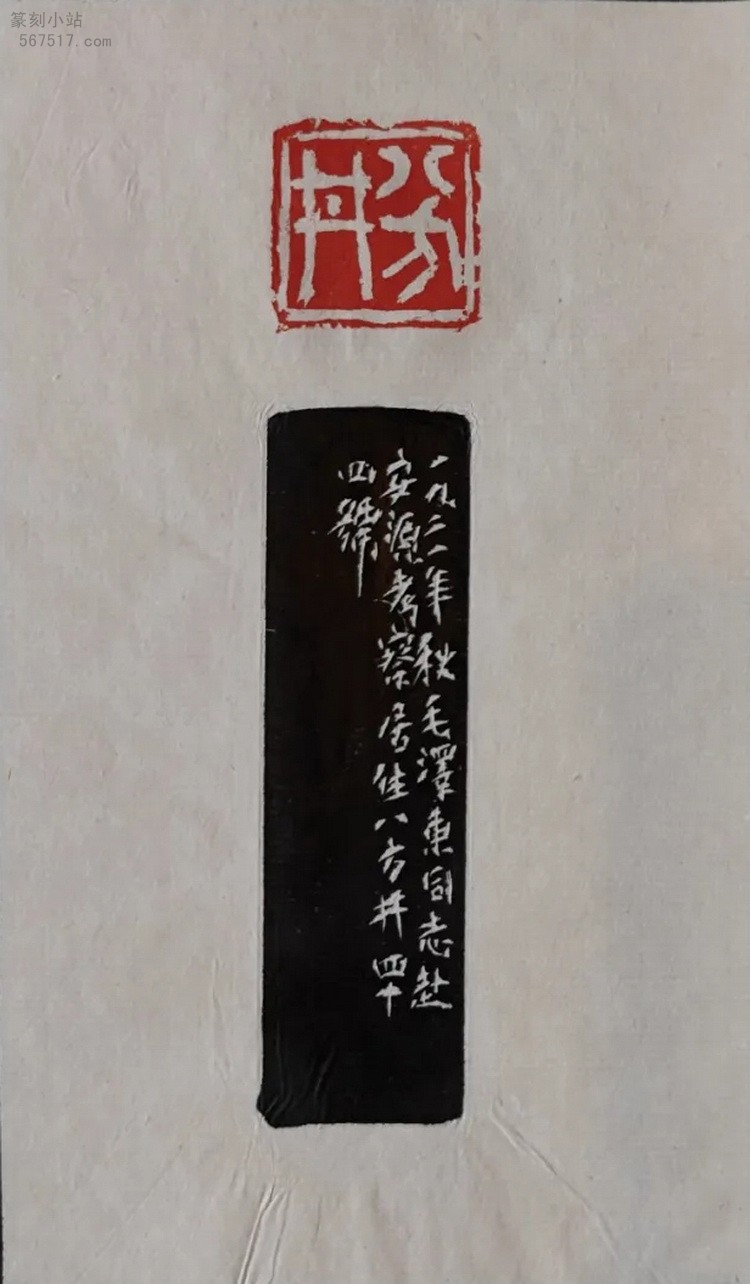 篆刻小站
567517.com
八方井
一九二一年秋毛澤東同志赴
安源考察居住八方井四十
四號